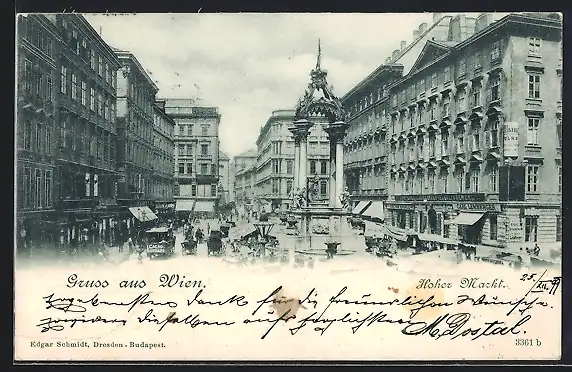 Gruss aus Wien.
Hoher Markt.
25/XII. 99
Ergebensten Dank für die freundlichen Wünsche,
dieselben aufs herzlichste
M. Dostal
Edgar Schmidt, Dresden-Budapest.
3361 b